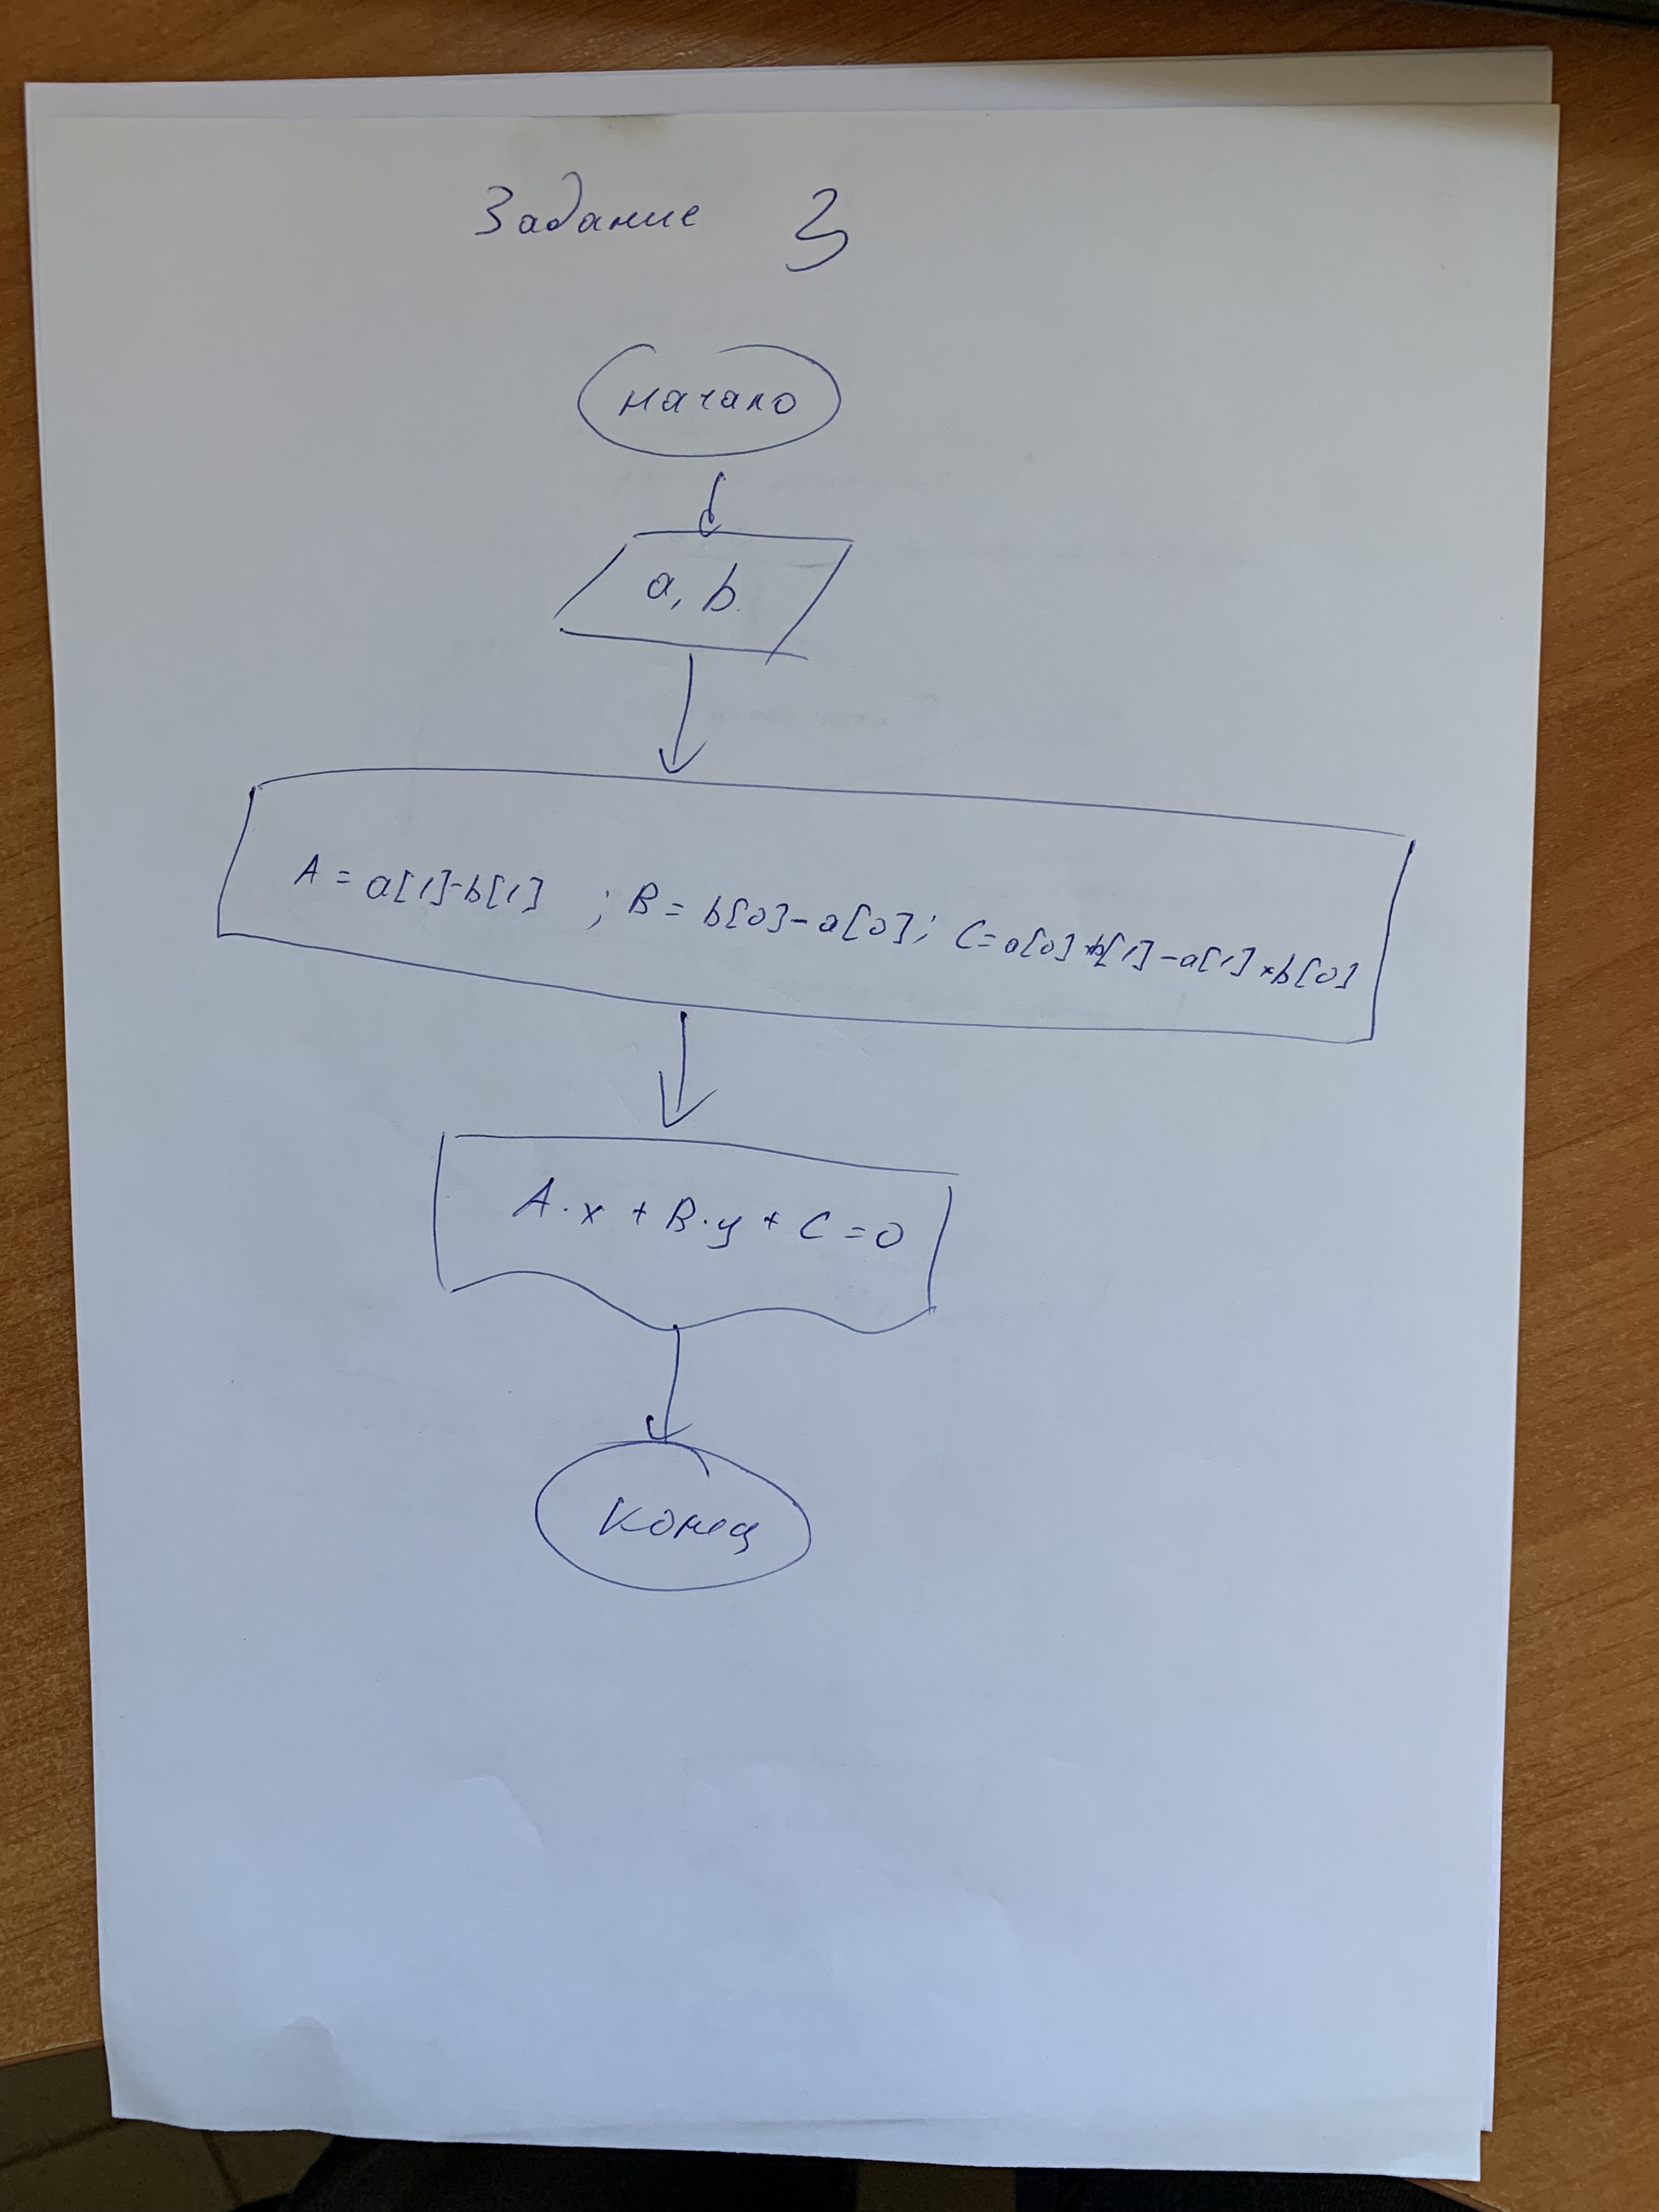 Задание 3
начало
a, b
A = a[1]-b[1] ; B = b[0]-a[0]; C=a[0]*b[1]-a[1]*b[0]
A·x + B·y + C = 0
конец